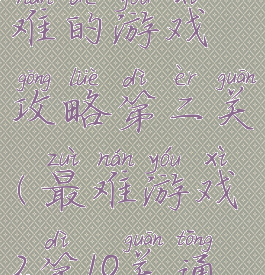 nán de yóu xì
难的游戏
gōng lüè dì èr guān
攻略第二关
zuì nán yóu xì
(最难游戏
dì guān tōng
2第10关通